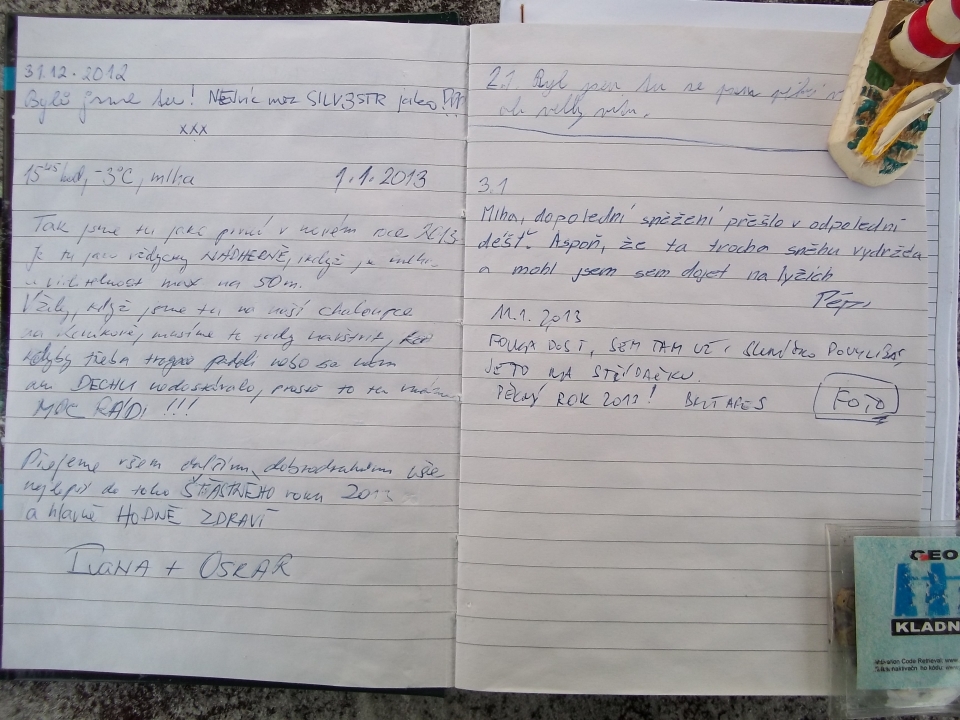 31.12.2012
Byli jsme tu! NEJVÍC MOZ SILV3STR jako !?!?
xxx
15⁴⁵ hod, -3°C, mlha 1.1.2013
Tak jsme tu jako první v novém roce 2013
Je tu jako vždycky NÁDHERNĚ, i když je mlha
a viditelnost max na 50m.
Vždy, když jsme tu na naší chaloupce
na musíme to tady navštívit,
kdyby třeba padali nebo se nám
ani DECHU nedostávalo, prostě to tu máme
MOC RÁDI !!!
Přejeme všem dalším dobrodruhům vše
nejlepší do toho ŠŤASTNÉHO roku 2013
a hlavně HODNĚ ZDRAVÍ
IVANA + OSKAR
2.1. Byl jsem tu se psem pěšky
3.1
Mlha, dopolední sněžení přešlo v odpolední
déšť. Aspoň, že ta trocha sněhu vydržela
a mohl jsem sem dojet na lyžích
11.1.2013
FOUKA DOST, SEM TAM UŽ I SLUNÍČKO
JE TO NA STŘÍDAČKU.
PĚKNÝ ROK 2013!
FOTO
GEO
KLADN